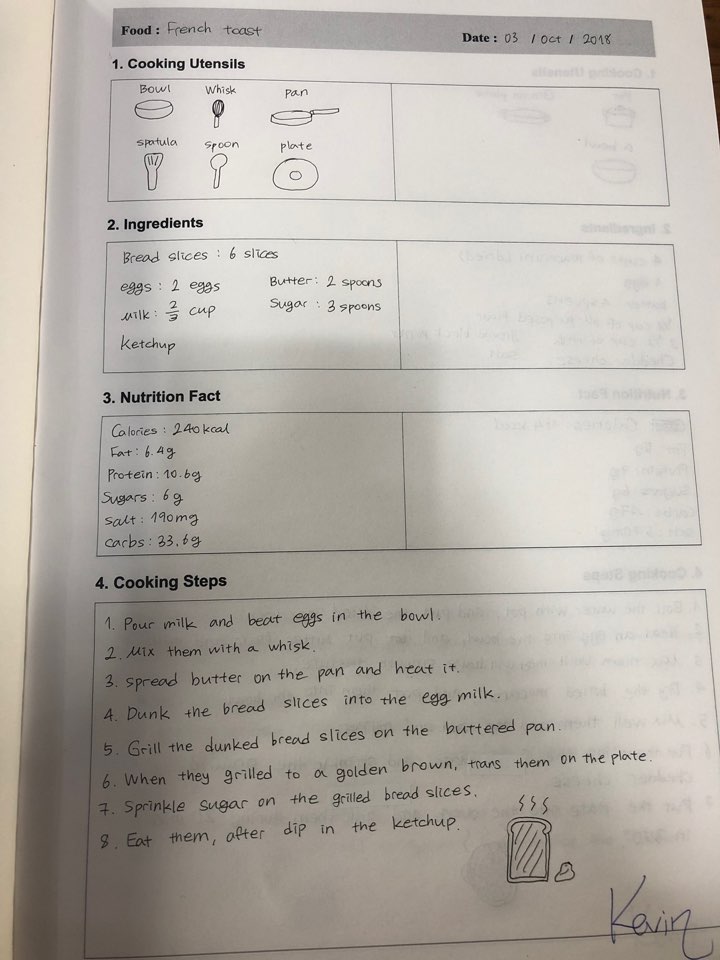 Food : French toast
Date : 03 / Oct / 2018
1. Cooking Utensils
Bowl Whisk pan
spatula spoon plate
2. Ingredients
Bread slices : 6 slices
eggs : 2 eggs Butter : 2 spoons
Milk : 2/3 cup Sugar : 3 spoons
Ketchup
3. Nutrition Fact
Calories : 240 kcal
Fat : 6.4g
Protein : 10.6g
Sugars : 6g
salt : 190mg
carbs : 33.6g
4. Cooking Steps
1. Pour milk and beat eggs in the bowl.
2. Mix them with a whisk.
3. spread butter on the pan and heat it.
4. Dunk the bread slices into the egg milk.
5. Grill the dunked bread slices on the buttered pan.
6. When they grilled to a golden brown, trans them on the plate.
7. Sprinkle sugar on the grilled bread slices.
8. Eat them, after dip in the ketchup.
Kevin